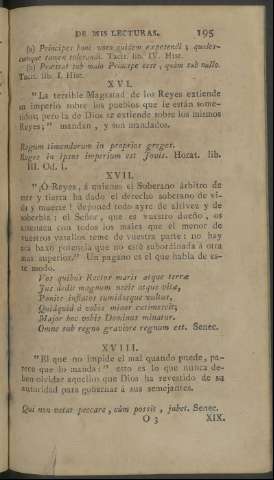 DE MIS LECTURAS. 195
(a) Principes boni voto quidem expetendi ; quales-
cumque tamen tolerandi. Tacit. lib. IV. Hist.
(b) Præstat sub malo Principe esse, quàm sub nullo.
Tacit. lib. I. Hist.
XVI.
"La terrible Magestad de los Reyes extiende
su imperio sobre los pueblos que le están some-
tidos; pero la de Dios se extiende sobre los mismos
Reyes;" mandan, y son mandados.
Regum timendorum in proprios greges,
Reges in ipsos imperium est Jovis. Horat. lib.
III. Od. I.
XVII.
"¡O Reyes, á quienes el Soberano árbitro de
mar y tierra ha dado el derecho soberano de vi-
da y muerte! deponed todo ayre de altivez y de
soberbia: el Señor, que es vuestro dueño, os
amenaza con todos los males que el menor de
vuestros vasallos teme de vuestra parte: no hay
acá baxo potencia que no esté subordinada á otra
mas superior." Un pagano es el que habla de es-
te modo.
Vos quibus Rector maris atque terræ
Jus dedit magnum necis atque vitæ,
Ponite inflatos tumidosque vultus,
Quidquid á vobis minor extimescit;
Major hoc vobis Dominus minatur.
Omne sub regno graviore regnum est. Senec.
XVIII.
"El que no impide el mal quando puede, pa-
rece que lo manda:" esto es lo que nunca de-
ben olvidar aquellos que Dios ha revestido de su
autoridad para gobernar á sus semejantes.
Qui non vetat peccare, cùm possit, jubet. Senec.
O 3 XIX.